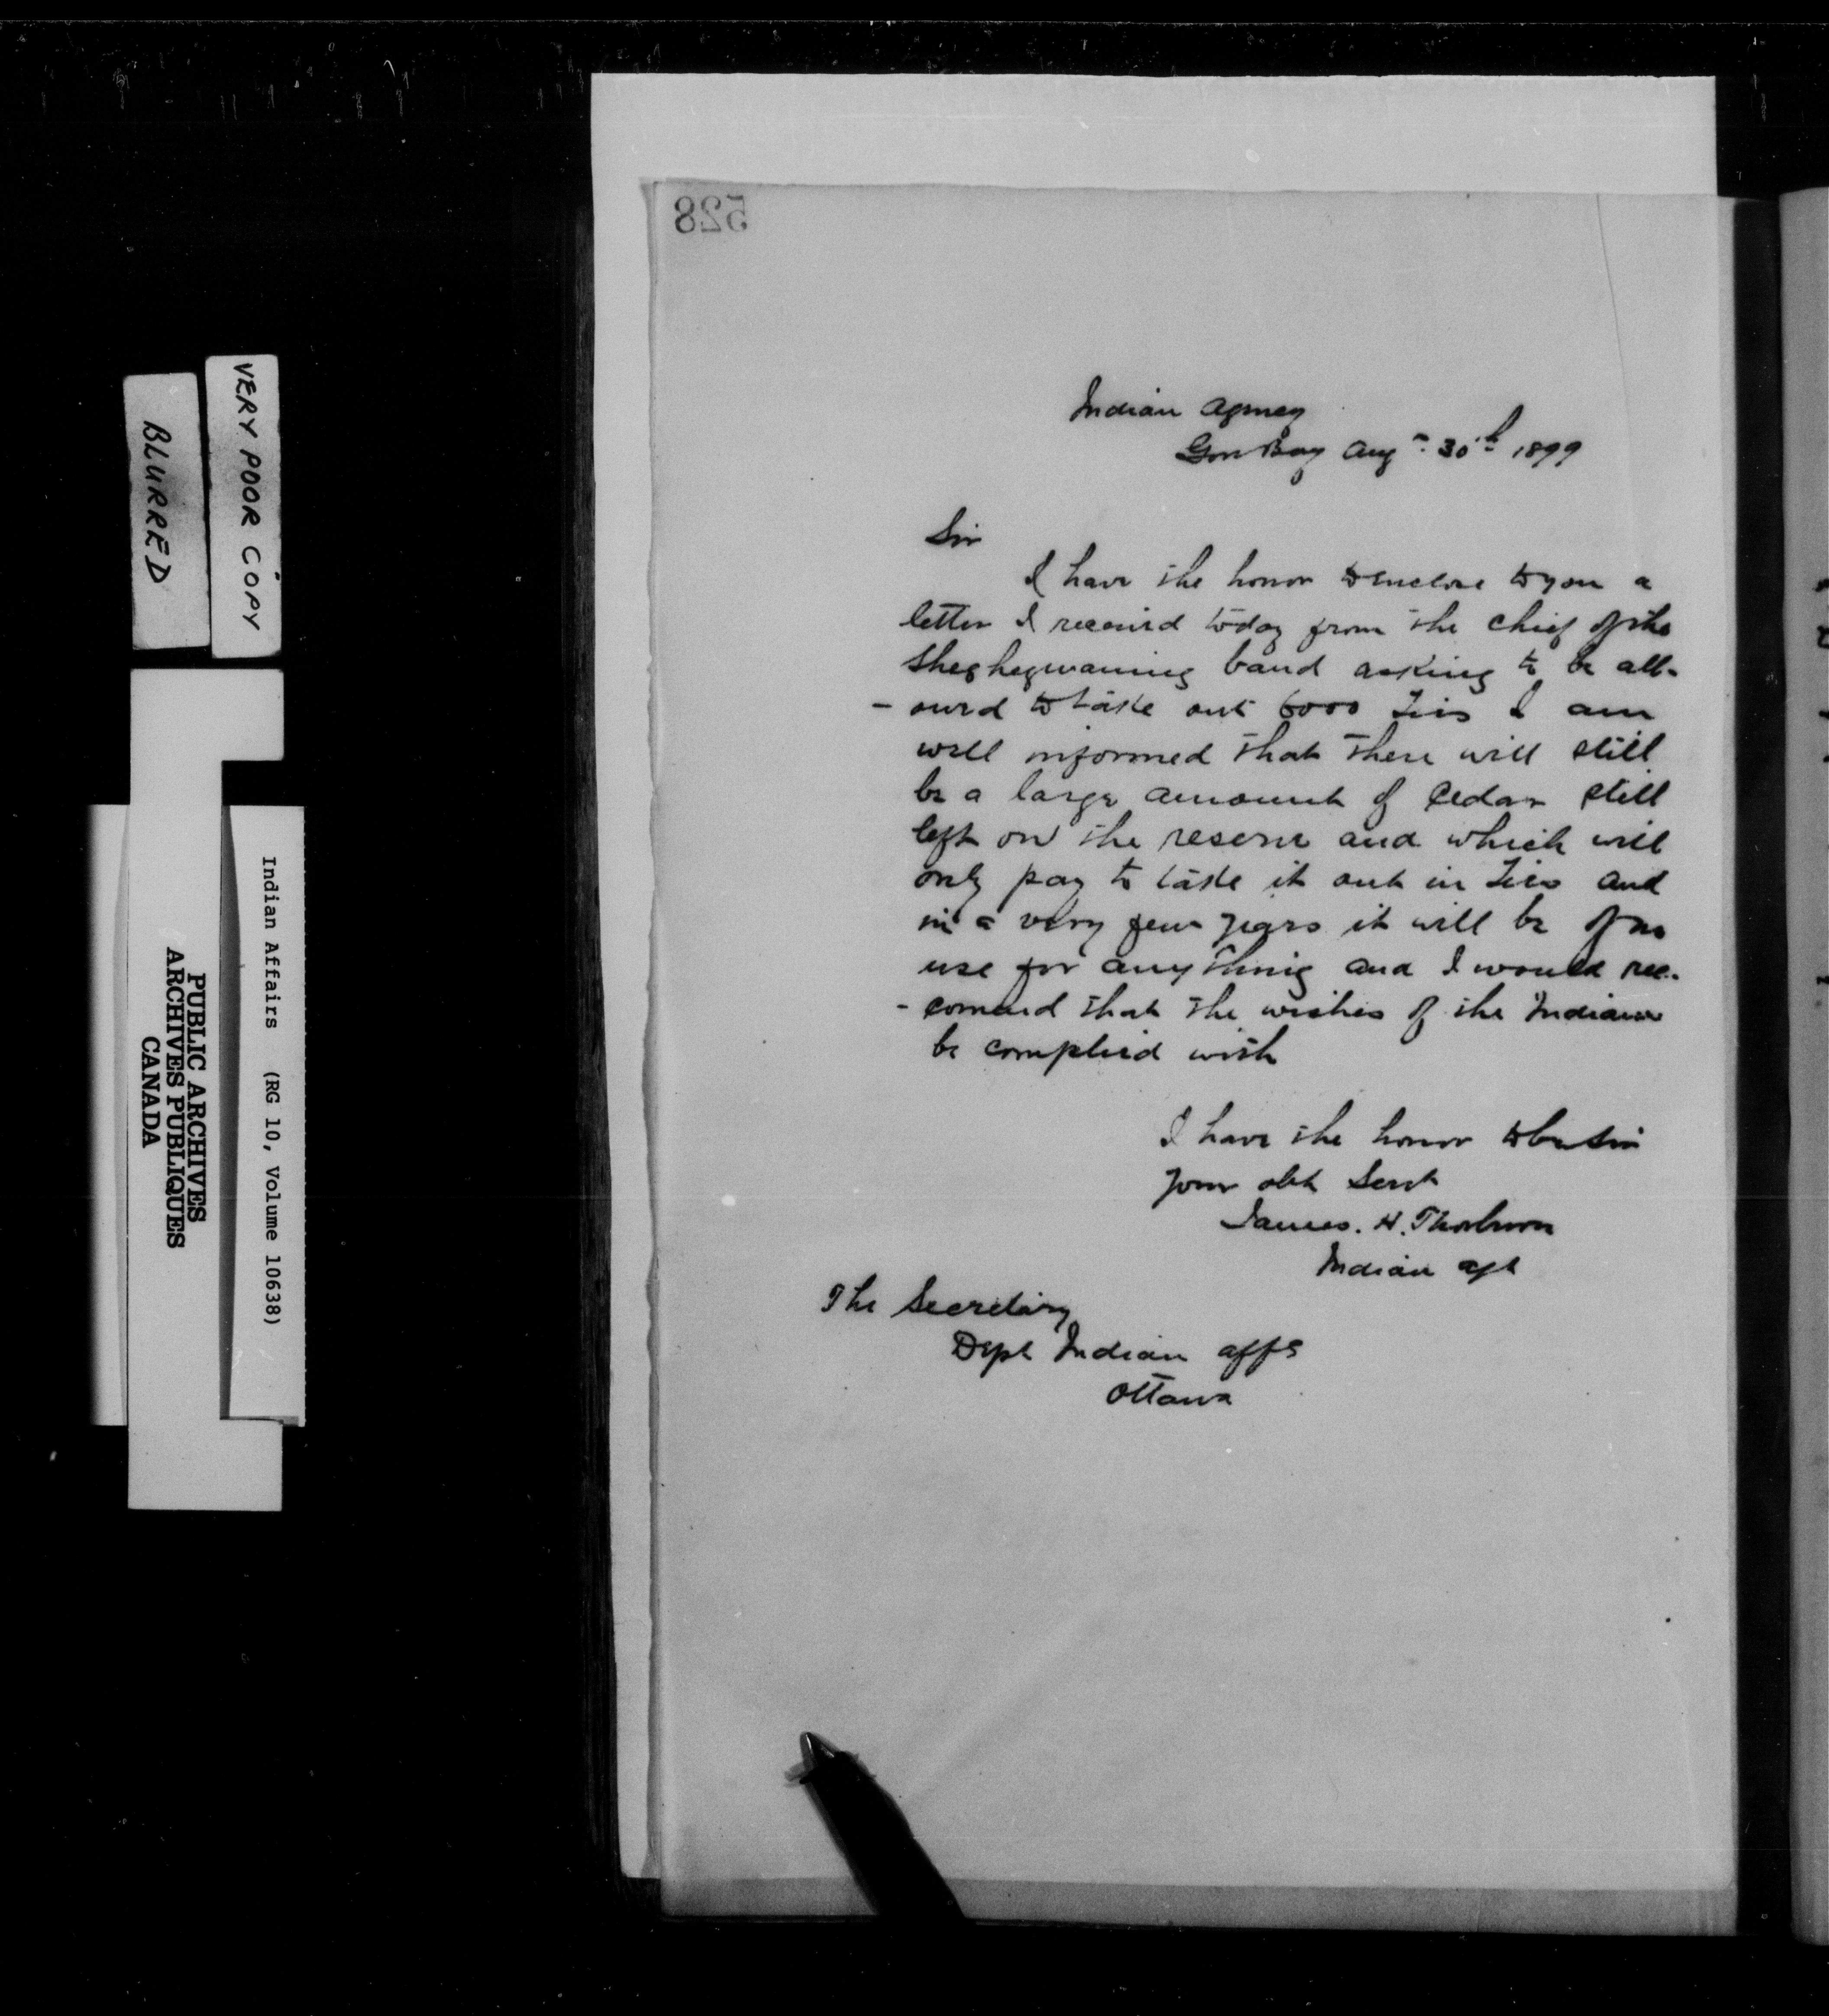 528
Indian Agency
Gore Bay Aug 30th 1899
Sir
I have the honor to enclose to you a
letter I received today from the chief of the
Sheshegwaning band asking to be all-
- owed to take out 6000 Ties I am
well informed that there will still
be a large amount of Cedar still
left on the reserve and which will
only pay to take it out in Ties and
in a very few years it will be of no
use for anything and I would rec-
- comend that the wishes of the Indians
be complied with
I have the honor to be Sir
Your obt Servt
James. H. Thorburn
Indian agt
The Secretary
Dept Indian affs
Ottawa
VERY POOR COPY
BLURRED
Indian Affairs (RG 10, Volume 10638)
PUBLIC ARCHIVES
ARCHIVES PUBLIQUES
CANADA